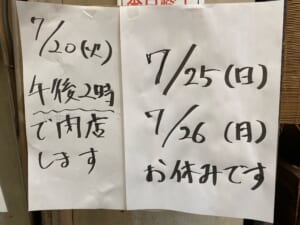 本日終了
7/20(火)
午後2時
で閉店
します
7/25(日)
7/26(月)
お休みです